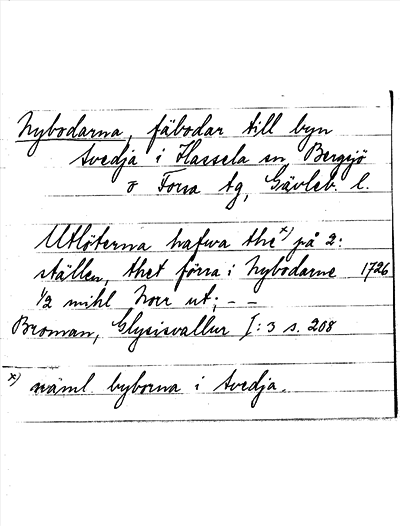 Nybodarna, fäbodar till byn
Svedja i Hassela sn, Bergsjö
o Forsa tg, Gävleb. l.
Utlöterna hafwa the x) på 2:
ställen, thet förra i Nybodarne 1726
1/2 mihl norr ut; – –
Broman, Glysisvallur I:3 s. 208
x) näml. byborna i Svedja.